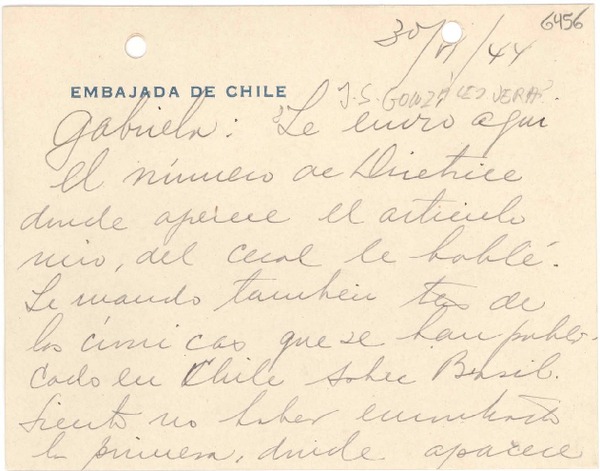 6456
30/VI/44
EMBAJADA DE CHILE
J. S. GONZÁLES VERA?
Gabriela: Le envío aqui
el número de
donde aparece el artículo
mío, del cual le hablé.
Le mando también tres de
las crónicas que se han publi-
cado en Chile sobre Brasil.
Siento no haber encontrado
la primera, donde aparece